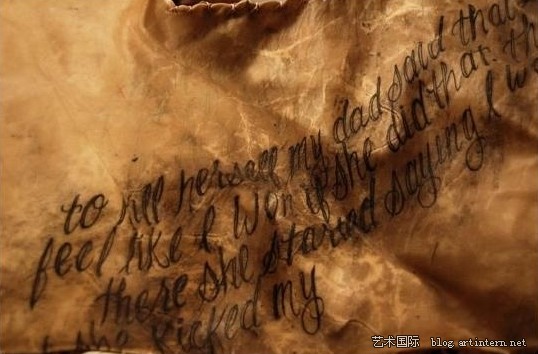 to kill herself my dad said that
feel like I won if she did that. th
there she started saying I w
she kicked my
艺术国际 blog.artintern.net